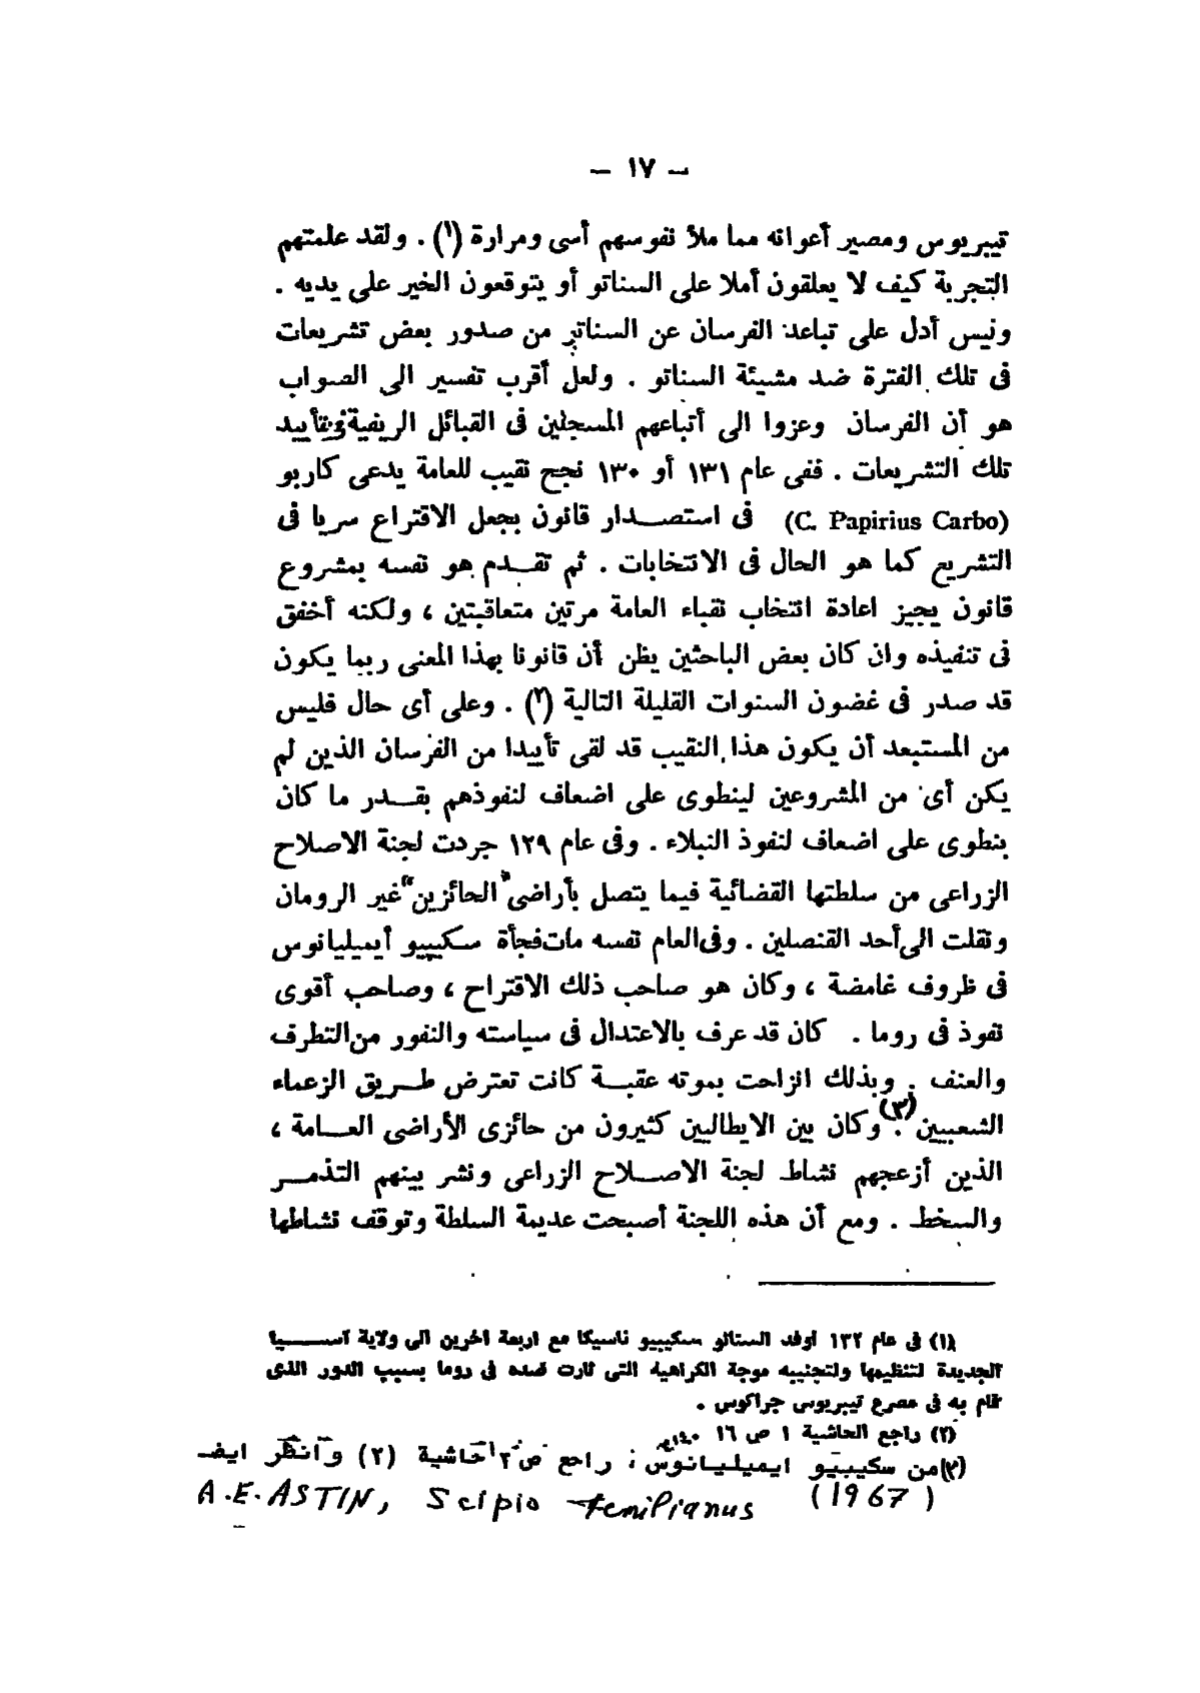 — ١٧ —
تيبريوس ومصير أعوانه مما ملأ نفوسهم أسى ومرارة (١) . ولقد علمتهم
التجربة كيف لا يعلقون أملا على السناتو أو يتوقعون الخير على يديه .
وليس أدل على تباعد الفرسان عن السناتو من صدور بعض تشريعات
فى تلك الفترة ضد مشيئة السناتو . ولعل أقرب تفسير الى الصواب
هو أن الفرسان وعزوا الى أتباعهم المسجلين فى القبائل الريفية بتأييد
تلك التشريعات . ففى عام ١٣١ أو ١٣٠ نجح نقيب للعامة يدعى كاربو
(C. Papirius Carbo) فى استصدار قانون بجعل الاقتراع سريا فى
التشريع كما هو الحال فى الانتخابات . ثم تقدم هو نفسه بمشروع
قانون يجيز اعادة انتخاب نقباء العامة مرتين متعاقبتين ، ولكنه أخفق
فى تنفيذه وان كان بعض الباحثين يظن أن قانونا بهذا المعنى ربما يكون
قد صدر فى غضون السنوات القليلة التالية (٢) . وعلى أى حال فليس
من المستبعد أن يكون هذا النقيب قد لقى تأييدا من الفرسان الذين لم
يكن أى من المشروعين لينطوى على اضعاف لنفوذهم بقدر ما كان
ينطوى على اضعاف لنفوذ النبلاء . وفى عام ١٢٩ جردت لجنة الاصلاح
الزراعى من سلطتها القضائية فيما يتصل بأراضى "الحائزين" غير الرومان
ونقلت الى أحد القنصلين . وفى العام نفسه مات فجأة سكيبيو أيميليانوس
فى ظروف غامضة ، وكان هو صاحب ذلك الاقتراح ، وصاحب أقوى
نفوذ فى روما . كان قد عرف بالاعتدال فى سياسته والنفور من التطرف
والعنف . وبذلك انزاحت بموته عقبة كانت تعترض طريق الزعماء
الشعبيين (٣) . وكان بين الايطاليين كثيرون من حائزى الأراضى العامة ،
الذين أزعجهم نشاط لجنة الاصلاح الزراعى ونشر بينهم التذمر
والسخط . ومع أن هذه اللجنة أصبحت عديمة السلطة وتوقف نشاطها
(١) فى عام ١٣٢ أوفد السناتو سكيبيو ناسيكا مع أربعة آخرين الى ولاية آسيا
الجديدة لتنظيمها ولتجنيبه موجة الكراهية التى ثارت ضده فى روما بسبب الدور الذى
قام به فى مصرع تيبريوس جراكوس .
(٢) راجع الحاشية ١ ص ١٦
(٣) من سكيبيو ايميليانوس ; راجع ص حاشية (٢) وانظر ايضـ
A.E. ASTIN, Scipio (1967)